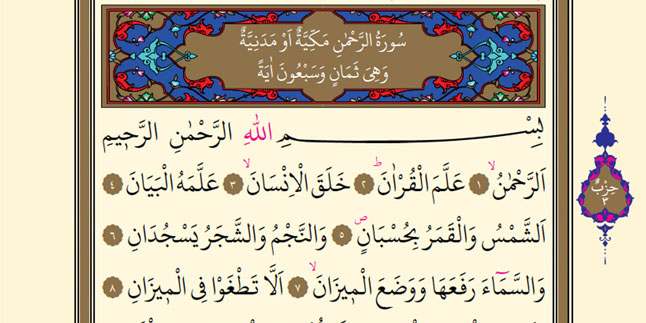 سُورَةُ الرَّحْمٰنِ مَكِّيَّةٌ اَوْ مَدَنِيَّةٌ
وَهِيَ ثَمَانٍ وَسَبْعُونَ اٰيَةً
بِسْــــمِ اللّٰهِ الرَّحْمٰنِ الرَّح۪يمِ
اَلرَّحْمٰنُۙ ﴿١﴾ عَلَّمَ الْقُرْاٰنَۜ ﴿٢﴾ خَلَقَ الْاِنْسَانَۙ ﴿٣﴾ عَلَّمَهُ الْبَيَانَ ﴿٤﴾
اَلشَّمْسُ وَالْقَمَرُ بِحُسْبَانٍۖ ﴿٥﴾ وَالنَّجْمُ وَالشَّجَرُ يَسْجُدَانِ ﴿٦﴾
وَالسَّمَٓاءَ رَفَعَهَا وَوَضَعَ الْم۪يزَانَۙ ﴿٧﴾ اَلَّا تَطْغَوْا فِي الْم۪يزَانِ ﴿٨﴾
حِزْبٌ
٣